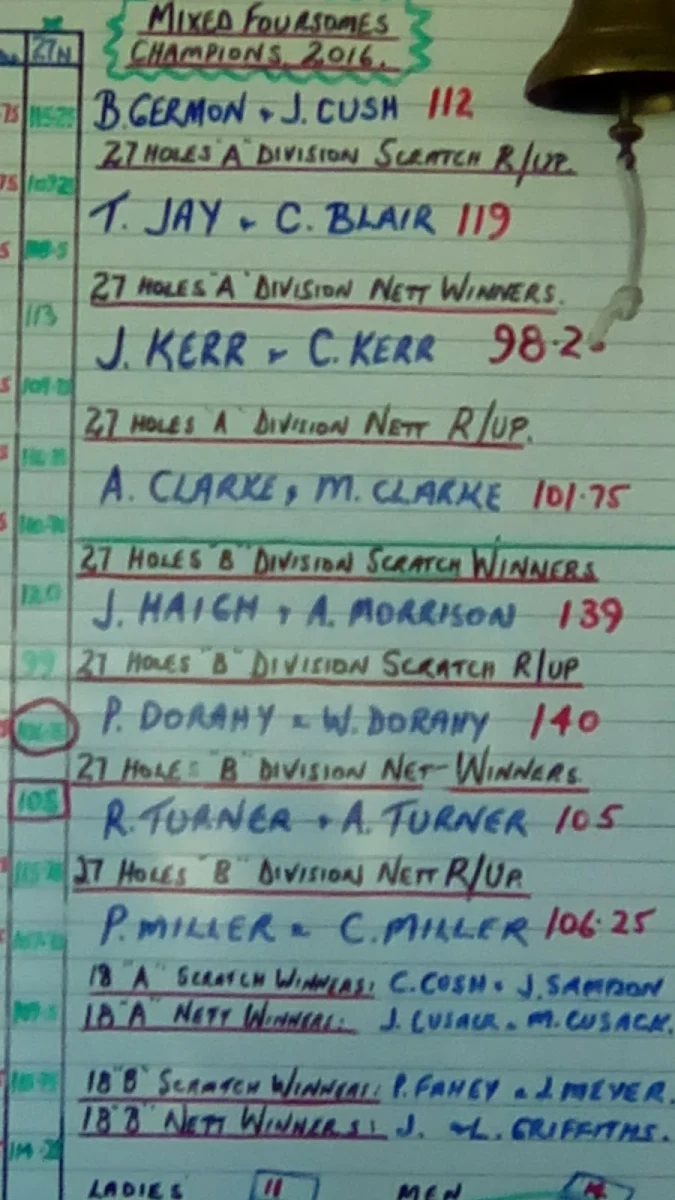 MIXED FOURSOMES
CHAMPIONS, 2016.
27N
B. GERMON & J. CUSH 112
27 HOLES "A" DIVISION SCRATCH R/UP.
T. JAY & C. BLAIR 119
27 HOLES "A" DIVISION NETT WINNERS.
113
J. KERR & C. KERR 98.2
27 HOLES "A" DIVISION NETT R/UP.
A. CLARKE & M. CLARKE 101.75
27 HOLES "B" DIVISION SCRATCH WINNERS
120
J. HAIGH & A. MORRISON 139
99
27 HOLES "B" DIVISION SCRATCH R/UP
P. DORAHY & W. DORAHY 140
27 HOLES "B" DIVISION NET-WINNERS
105
R. TURNER & A. TURNER 105
27 HOLES "B" DIVISION NETT R/UP.
P. MILLER & C. MILLER 106.25
18 "A" SCRATCH WINNERS: C. COSH & J.
18 "A" NETT WINNERS: J. CUSACK & M. CUSACK.
18 "B" SCRATCH WINNERS: P. FAHEY & J. MEYER.
18 "B" NETT WINNERS: J. & L. GRIFFITHS.
LADIES 11 MEN